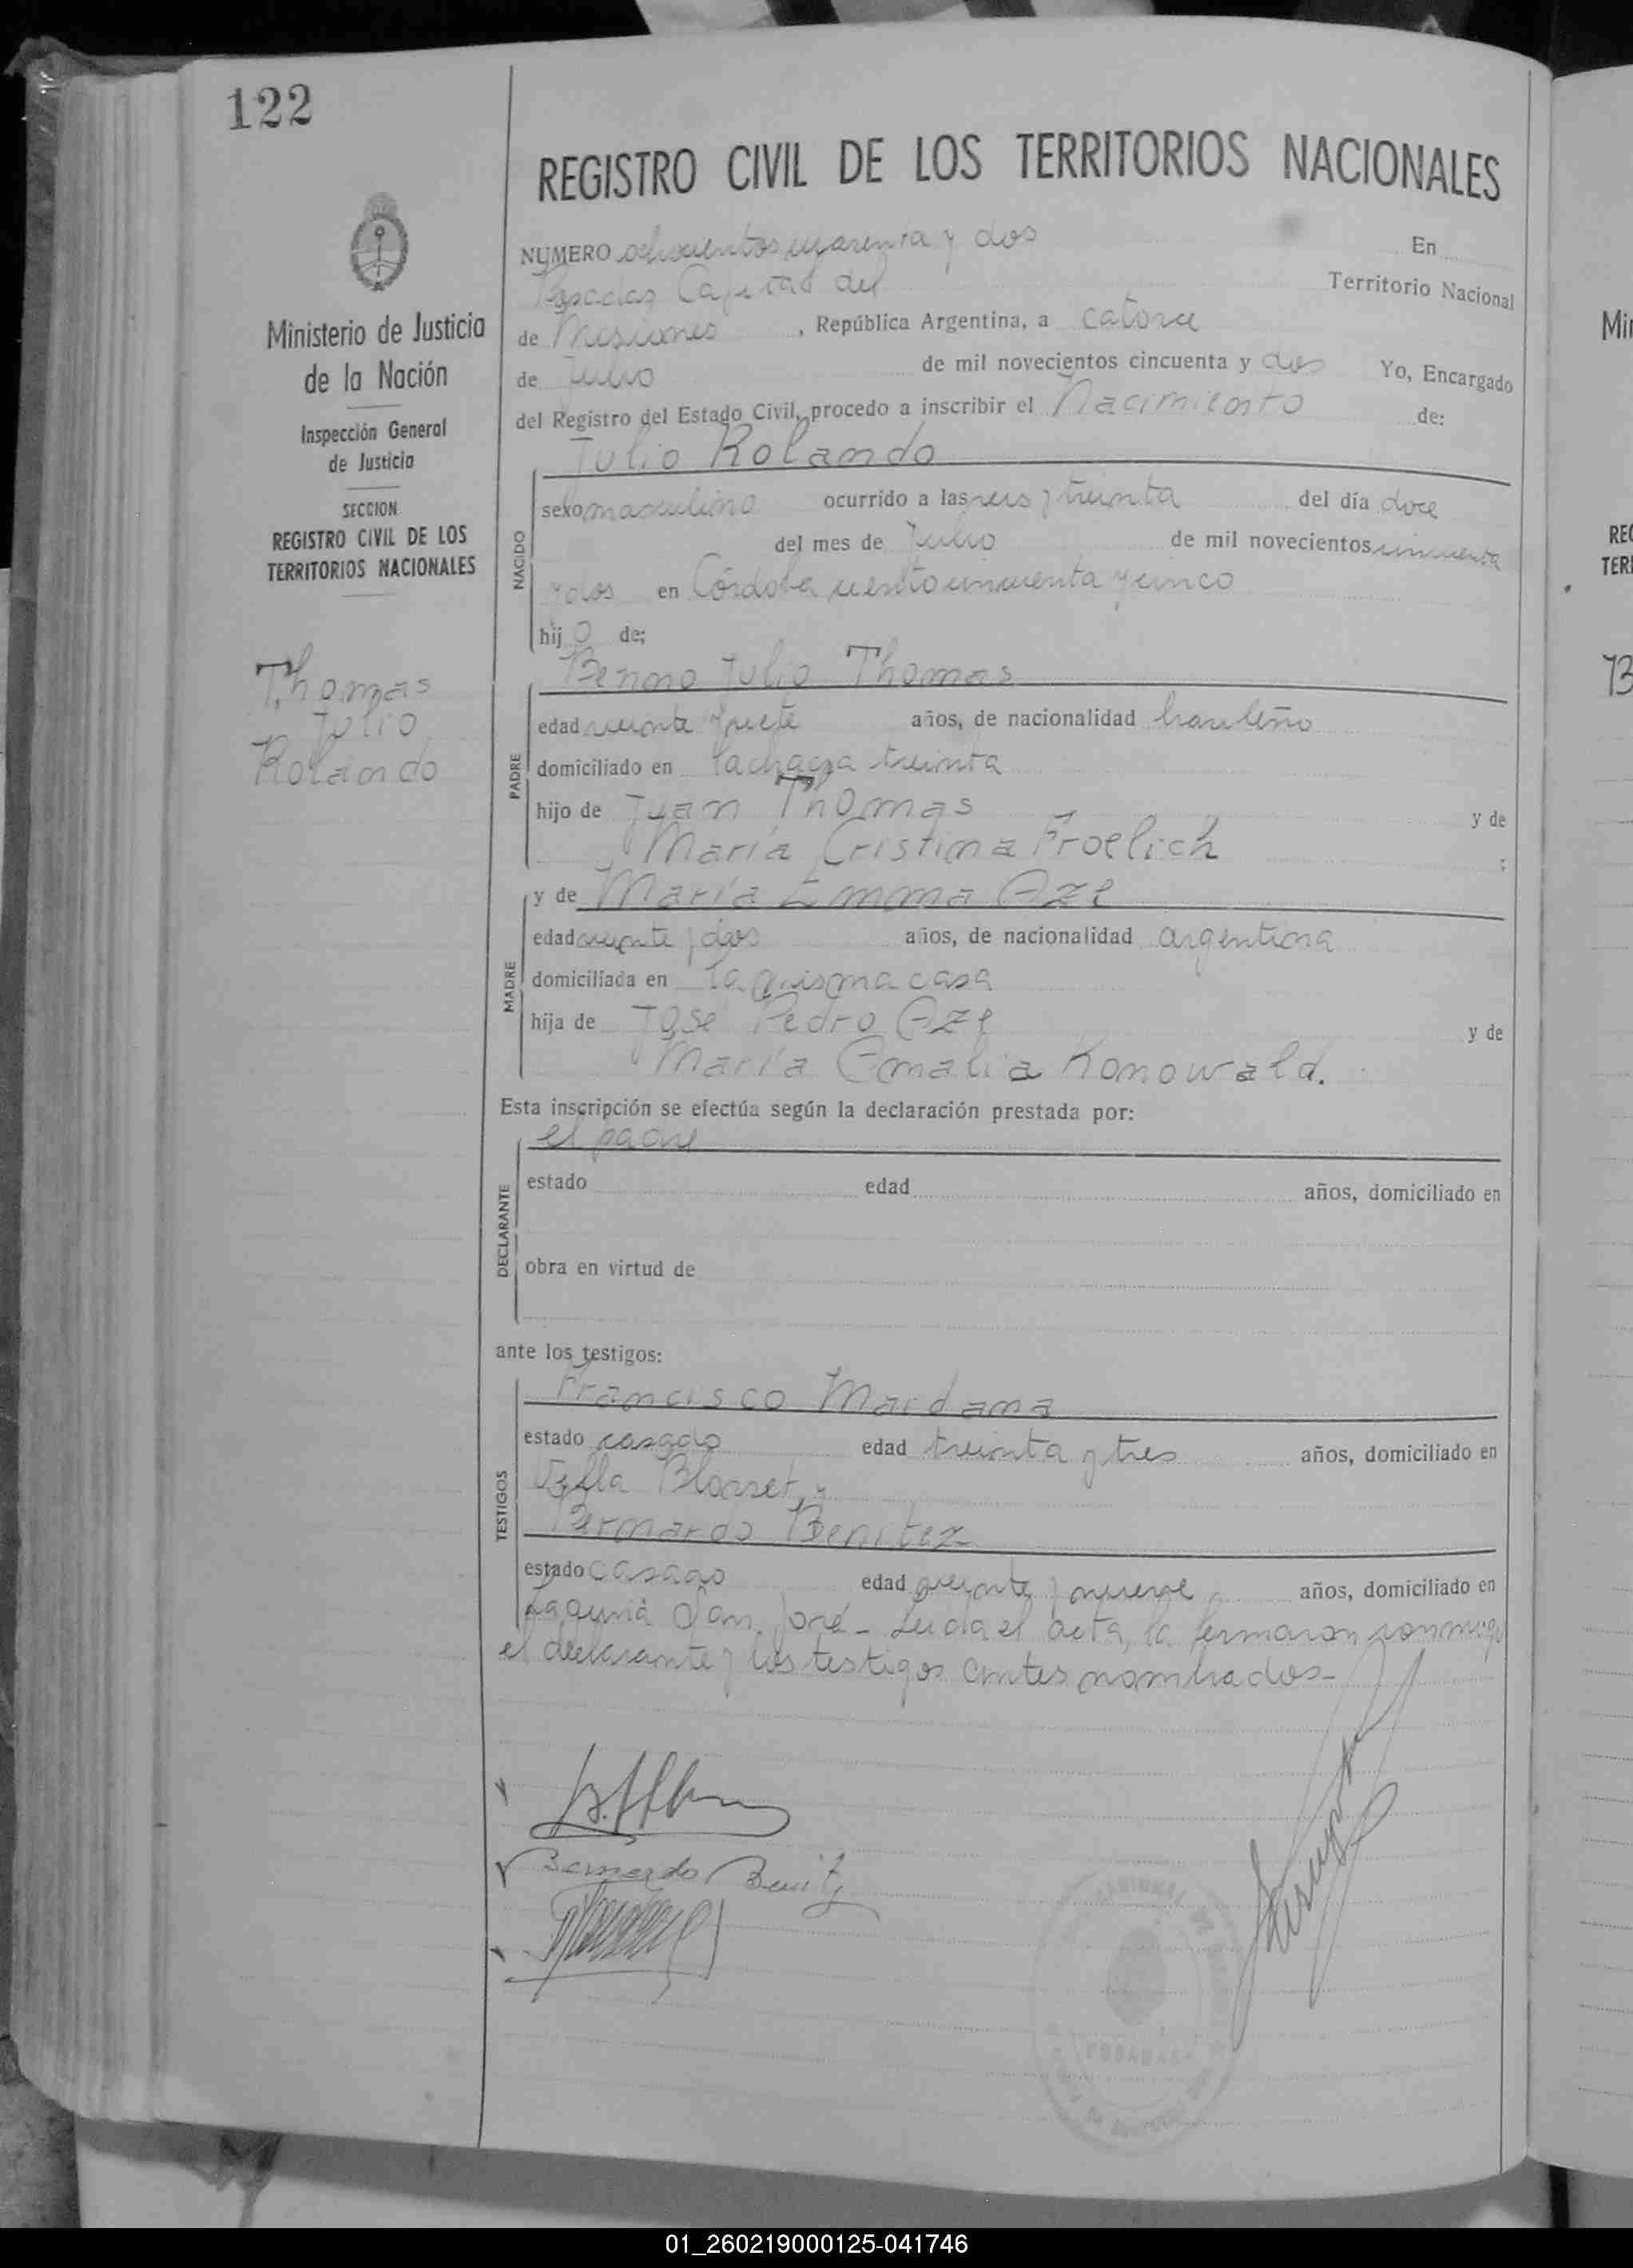 122
REGISTRO CIVIL DE LOS TERRITORIOS NACIONALES
Ministerio de Justicia
de la Nación
Inspección General
de Justicia
SECCION
REGISTRO CIVIL DE LOS
TERRITORIOS NACIONALES
Thomas
Julio
Rolando
NUMERO ochocientos cuarenta y dos En
Posadas Capital del Territorio Nacional
de Misiones, República Argentina, a catorce
de Julio de mil novecientos cincuenta y dos Yo, Encargado
del Registro del Estado Civil, procedo a inscribir el Nacimiento de:
Julio Rolando
NACIDO
sexo masculino ocurrido a las seis y treinta del día doce
del mes de Julio de mil novecientos cincuenta
y dos en Córdoba ciento cincuenta y cinco
hijo de:
Benno Julio Thomas
PADRE
edad veinte y siete años, de nacionalidad brasileño
domiciliado en la chacra treinta
hijo de Juan Thomas y de
María Cristina Froelich ;
y de María Emma Aze
MADRE
edad veinte y dos años, de nacionalidad argentina
domiciliada en la misma casa
hija de José Pedro Aze y de
María Amalia Konowald.
Esta inscripción se efectúa según la declaración prestada por:
el padre
DECLARANTE
estado edad años, domiciliado en
obra en virtud de
ante los testigos:
Francisco Mardama
TESTIGOS
estado casado edad treinta y tres años, domiciliado en
Villa Blosset y
Bernardo Benitez
estado casado edad veinte y nueve años, domiciliado en
Laguna San José - Leida el acta, la firmaron conmigo
el declarante y los testigos antes nombrados -
Bernardo Benitz
POSADAS
Mi
REG
TERI
73
01_260219000125-041746